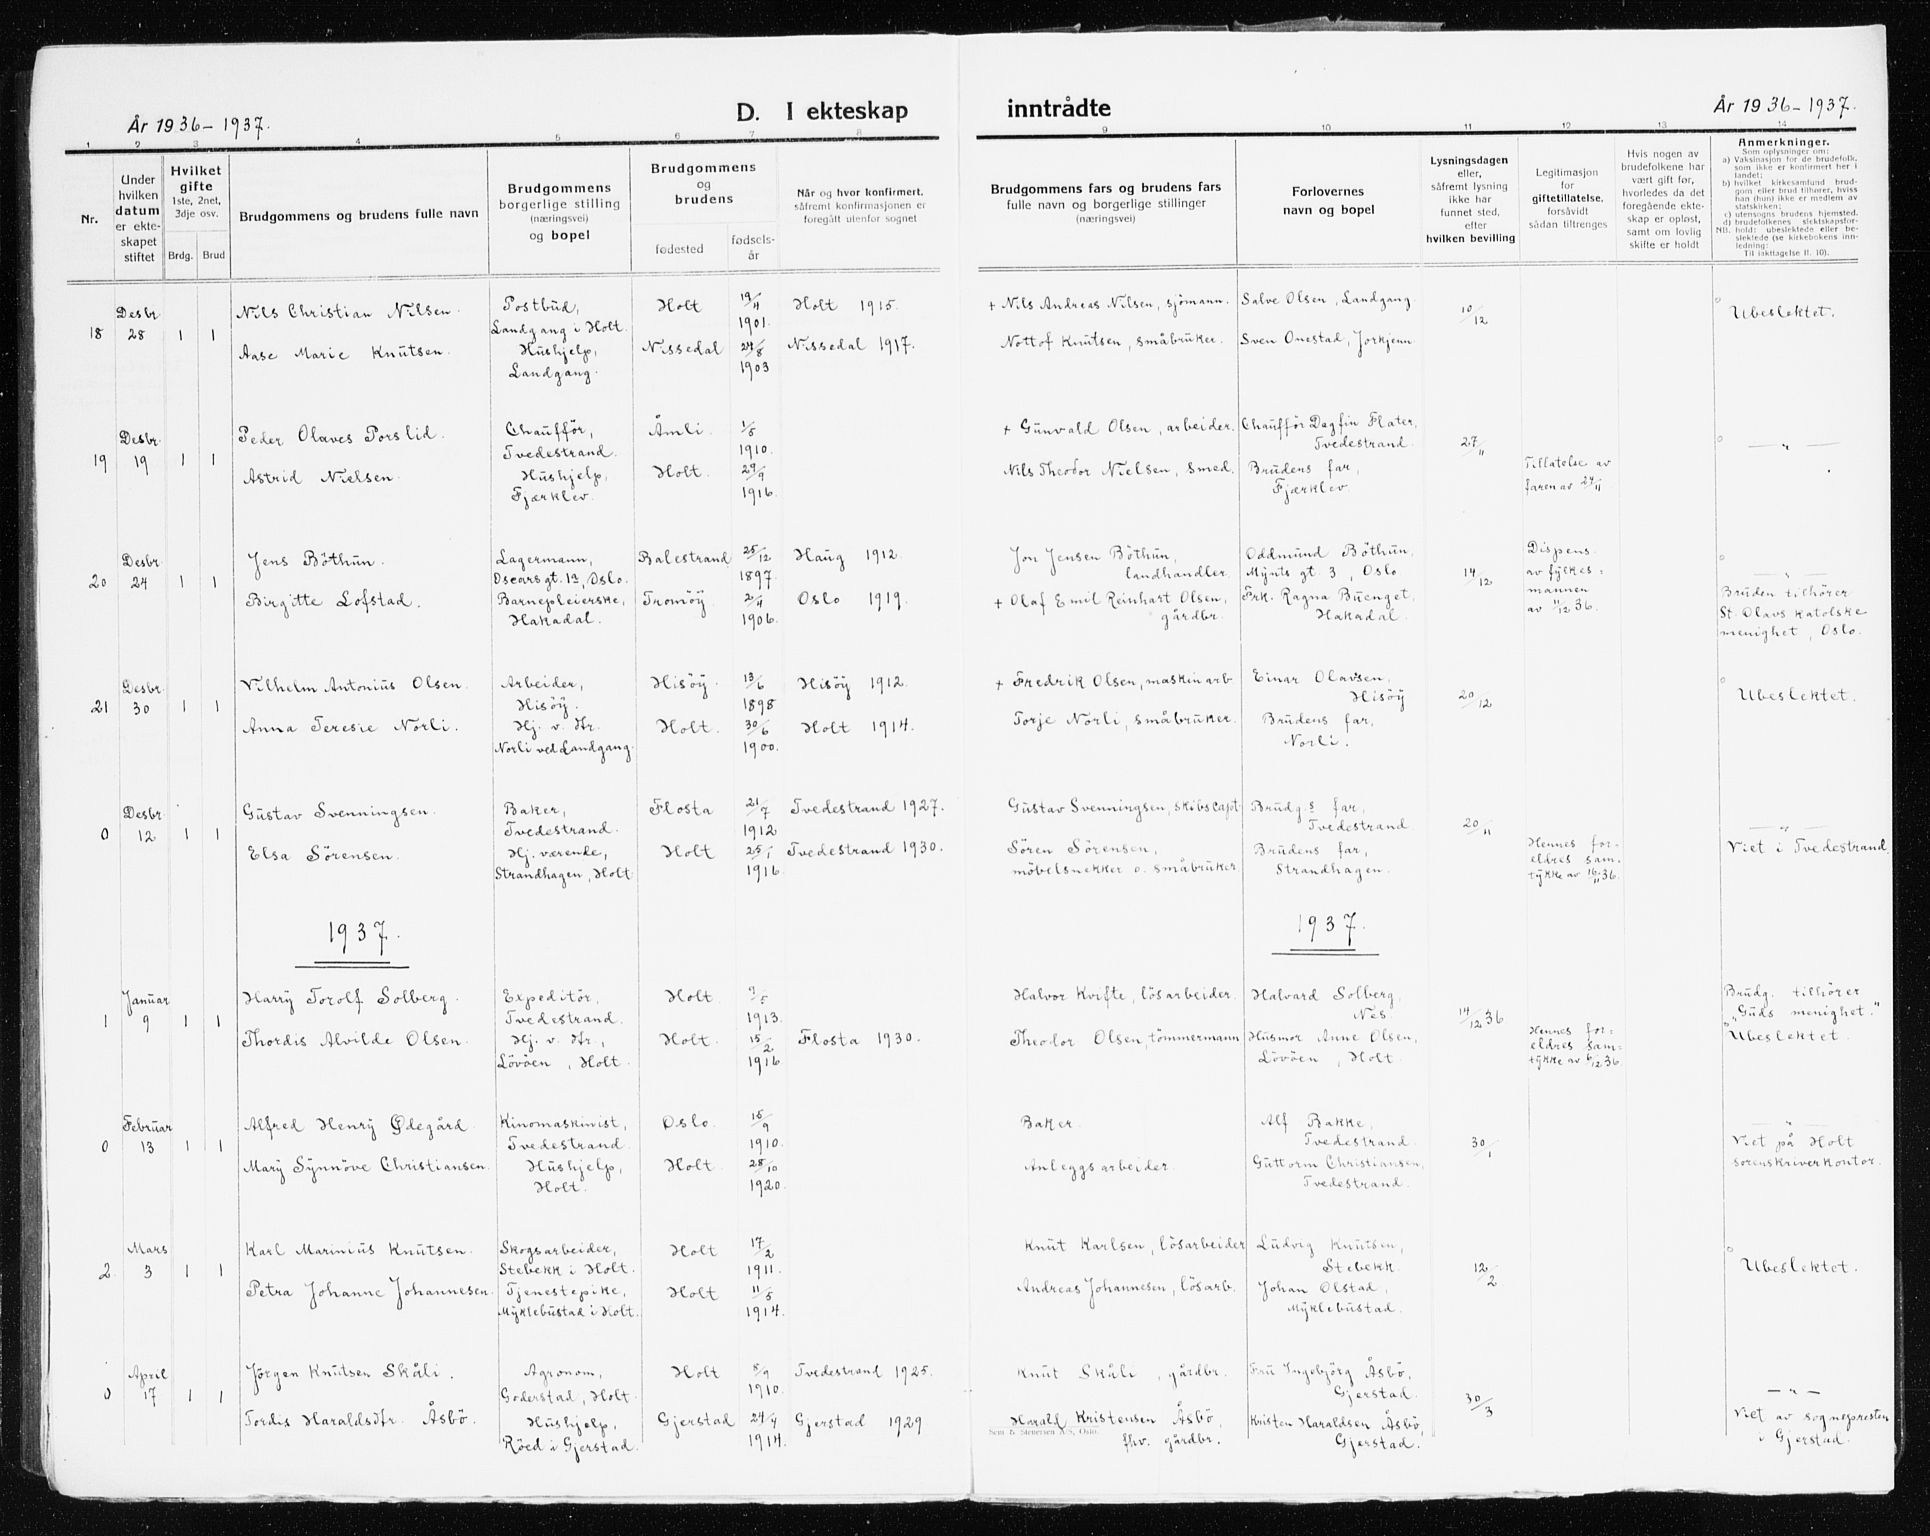 År 1936-1937.
D. I ekteskap
inntrådte
År 1936-1937.
1 2 3 4 5 6 7 8 9 10 11 12 13 14
Nr.
Under hvilken datum er ekteskapet stiftet
Hvilket gifte
1ste, 2net, 3dje osv.
Brdg. Brud
Brudgommens og brudens fulle navn
Brudgommens borgerlige stilling (næringsvei) og bopel
Brudgommens og brudens
fødested
fødsels-år
Når og hvor konfirmert, såfremt konfirmasjonen er foregått utenfor sognet
Brudgommens fars og brudens fars fulle navn og borgerlige stillinger (næringsvei)
Forlovernes navn og bopel
Lysningsdagen eller, såfremt lysning ikke har funnet sted, efter hvilken bevilling
Legitimasjon for giftetillatelse, forsåvidt sådan tiltrenges
Hvis nogen av brudefolkene har vært gift før, hvorledes da det foregående ekteskap er opløst, samt om lovlig skifte er holdt
Anmerkninger.
Som oplysninger om:
a) Vaksinasjon for de brudefolk, som ikke er konfirmert her i landet;
b) hvilket kirkesamfund brudgom eller brud tilhører, hviss han (hun) ikke er medlem av statskirken;
c) utensogns brudens hjemsted.
d) brudefolkenes slektskapsforhold: ubeslektede eller beslektede (se kirkebokens innledning:
NB.
Til iakttagelse II. 10).
18 Desbr. 28 1 1
Nils Christian Nilsen.
Postbud, Landgang i Holt.
Holt 19/4 1901. Holt 1915.
+ Nils Andreas Nilsen, sjömann.
Salve Olsen, Landgang.
10/12
Ubeslektet.
Aase Marie Knutsen.
Hushjelp, Landgang.
Nissedal 24/8 1903 Nissedal 1917.
Nottof Knutsen, småbruker.
Sven Onestad, Jorkjenn.
19 Desbr. 19 1 1
Peder Olaves Porslid.
Chaufför, Tvedestrand.
Åmli. 1/5 1910.
+ Gunvald Olsen, arbeider.
Chaufför Dagfin Flater, Tvedestrand.
27/11
— " —
Astrid Nielsen.
Hushjelp, Fjærklev.
Holt. 29/9 1916.
Nils Theodor Nielsen, smed.
Brudens far, Fjærklev.
Tillatelse av faren av 24/11
20 Desbr. 24 1 1
Jens Böthun.
Lagermann, Oscarsgt. 1a, Oslo.
Balestrand 25/12 1897. Haug 1912.
Jon Jensen Böthun, landhandler.
Oddmund Böthun, Mynts gt. 3, Oslo.
14/12
Dispens. av fylkesmannen av 11/12 36.
— " —
Birgitte Lofstad.
Barnepleierske, Hakadal.
Tromöy 2/4 1906. Oslo 1919.
+ Olaf Emil Reinhart Olsen, gårdbr.
Frk. Ragna Buenget, Hakadal.
Bruden tilhører St. Olavs katolske menighet, Oslo.
21 Desbr. 30 1 1
Vilhelm Antonius Olsen.
Arbeider, Hisöy.
Hisöy. 13/6 1898 Hisöy 1912.
+ Fredrik Olsen, maskinarb.
Einar Olavsen, Hisöy
20/12
Ubeslektet.
Anna Teresie Norli.
Hj. v. Hr. Norli ved Landgang.
Holt. 30/6 1900. Holt 1914.
Torje Norli, småbruker.
Brudens far, Norli.
0 Desbr. 12 1 1
Gustav Svenningsen.
Baker, Tvedestrand.
Flosta 21/7 1912 Tvedestrand 1927.
Gustav Svenningsen, skibscapt.
Brudg.s far, Tvedestrand.
20/11
— " —
Viet i Tvedestrand.
Elsa Sörensen.
Hj. værende, Strandhagen, Holt
Holt 25/1 1916. Tvedestrand 1930.
Sören Sörensen, möbelsnekker o. småbruker
Brudens far, Strandhagen.
Hennes foreldres samtykke av 16/11 36.
1937.
1937.
1 Januar 9 1 1
Harry Torolf Solberg.
Expeditör, Tvedestrand.
Holt. 1913.
Halvor Kvifte, lösarbeider.
Halvard Solberg, Nes.
14/12 36
Brudg. tilhører "Guds menighet."
Ubeslektet.
Thordis Alvilde Olsen.
Hj. v. Hr., Lövöen, Holt.
Holt. 15/2 1916 Flosta 1930.
Theodor Olsen, tömmermann
Husmor Anne Olsen, Lövöen, Holt.
Hennes foreldres samtykke av 6/12 36
0 Februar 13 1 1
Alfred Henry Ødegård.
Kinomaskinist, Tvedestrand.
Oslo. 15/9 1910.
Baker.
Alf Bakke, Tvedestrand.
30/1
— " —
Viet på Holt sorenskriverkontor.
Mary Synnöve Christiansen.
Hushjelp, Holt.
Holt. 28/10 1920.
Anleggsarbeider.
Guttorm Christiansen, Tvedestrand.
2. Mars 3 1 1
Karl Marinius Knutsen.
Skogsarbeider, Stebekk i Holt.
Holt 17/2 1911.
Knut Karlsen, lösarbeider
Ludvig Knutsen, Stebekk.
12/2
Ubeslektet.
Petra Johanne Johannesen.
Tjenestepike, Myklebustad i Holt.
Holt 11/5 1914.
Andreas Johannesen, lösarb.
Johan Olstad, Myklebustad.
0 April 17 1 1
Jörgen Knutsen Skåli.
Agronom, Goderstad, Holt.
Holt 8/9 1910. Tvedestrand 1925.
Knut Skåli, gårdbr.
Fru Ingebjörg Åsbö, Gjerstad.
30/3
— " —
Viet av sognepresten i Gjerstad.
Tordis Haraldsdtr. Åsbö.
Hushjelp, Röed i Gjerstad.
Gjerstad 24/4 1914. Gjerstad 1929
Harald Kristensen Åsbö, fhv. gårdbr.
Kristen Haraldsen Åsbö, Gjerstad.
Sem & Stenersen A/S, Oslo.